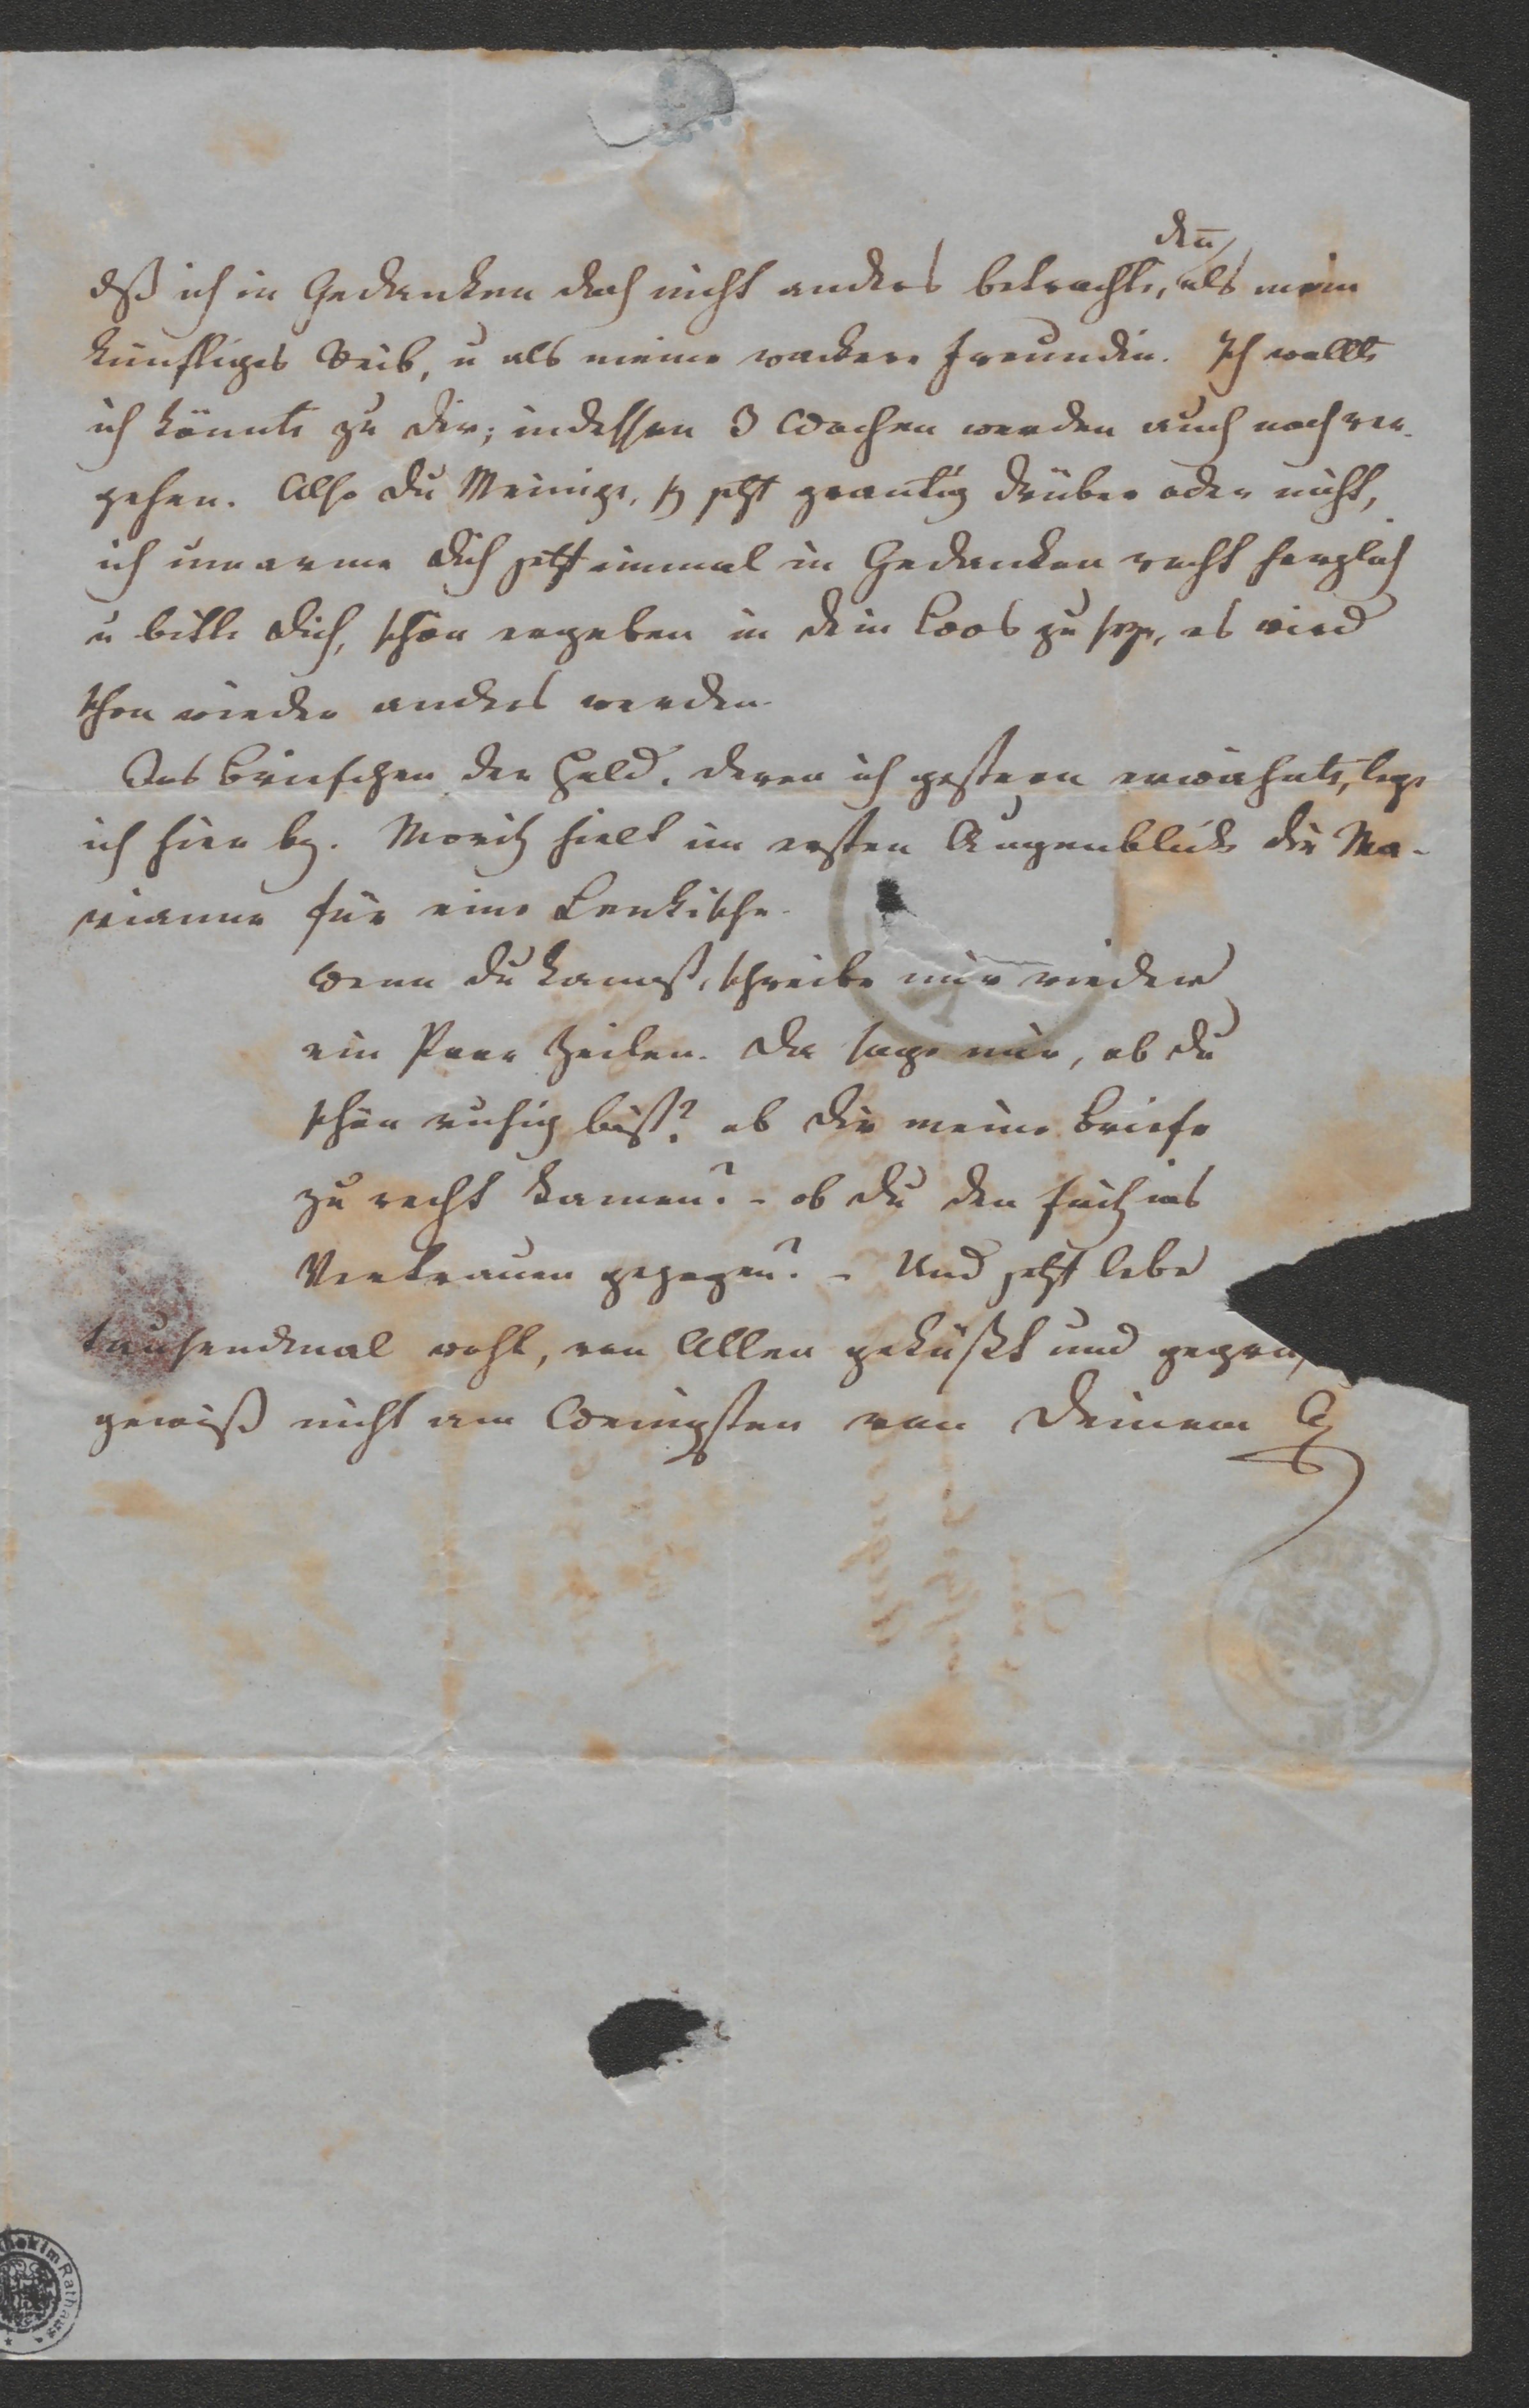 den̄
dß ich in Gedanken doch nicht anders betrachte, als mein
künftiges Weib, u als meine wackere Freundin. Ich wollte
ich könnte zu dir; indessen 3 Wochen werden auch noch ver-
gehen. Also du Meinige, sey jetzt grantig drüber oder nicht,
ich umarme dich jetzt einmal in Gedanken recht herzlich
u bitte dich, schön ergeben in dein Loos zu seyn, es wird
schon wieder anders werden.
Das Briefchen der Held, deren ich gestern erwähnte, lege
ich hier bey. Moritz hielt im ersten Augenblick die Ma-
rianne für eine
Wenn du kannst, schreibe mir wieder
ein Paar Zeilen. Da sage mir, ob du
schön ruhig bist? ob dir meine Briefe
zu recht kamen? - ob du den Fritz ins
Vertrauen gezogen? - Und jetzt lebe
tausendmal wohl, von Allen geküßt und gegrü
gewiß nicht am Wenigsten von Deinem
im Rathaus